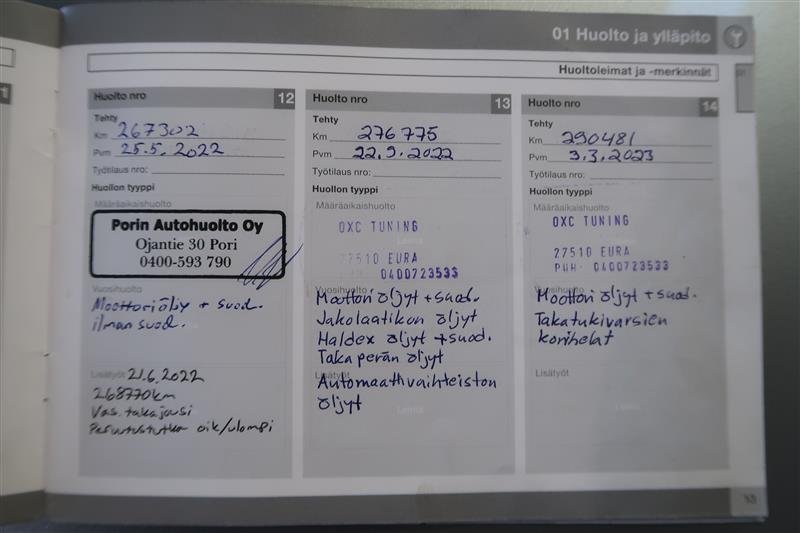 01 Huolto ja ylläpito
Huoltoleimat ja -merkinnät
1
Huolto nro 12
Tehty
Km 267302
Pvm 25.5.2022
Työtilaus nro:
Huollon tyyppi
Määräaikaishuolto
Porin Autohuolto Oy
Ojantie 30 Pori
0400-593 790
Vuosihuolto
Moottoriöljy + suod.
ilman suod.
Lisätyöt 21.6.2022
268770km
Vas. takajousi
Peruutustutka oik/ulompi
Huolto nro 13
Tehty
Km 276775
Pvm 22.9.2022
Työtilaus nro:
Huollon tyyppi
Määräaikaishuolto
OXC TUNING
Leima
27510 EURA
0400723533
Vuosihuolto
Moottori öljyt + suod.
Jakolaatikon öljyt
Haldex öljyt + suod.
Taka perän öljyt
Lisätyöt
Automaattivaihteiston
öljyt
Leima
Huolto nro 14
Tehty
Km 290481
Pvm 3.3.2023
Työtilaus nro:
Huollon tyyppi
Määräaikaishuolto
OXC TUNING
27510 EURA
PUH. 0400723533
Vuosihuolto
Moottori öljyt + suod.
Takatukivarsien
korihelat
Lisätyöt